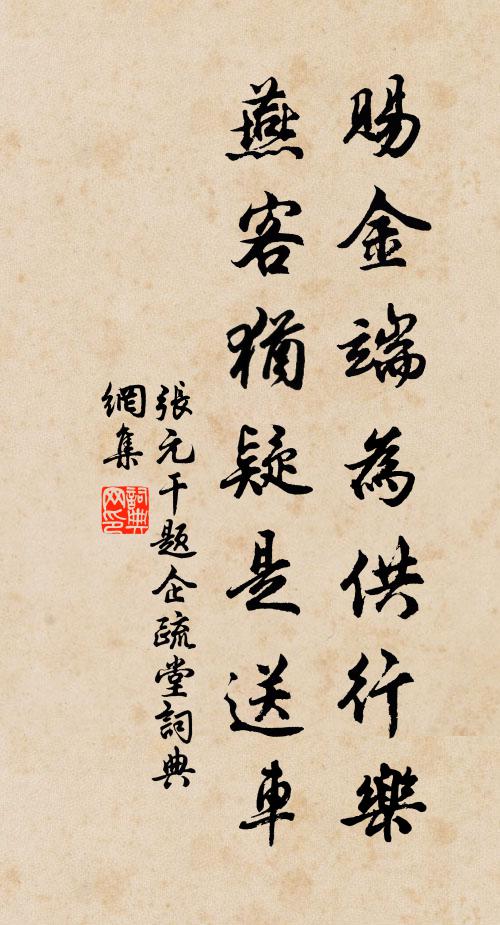 賜金端為供行樂
燕客猶疑是送車
張元干題企疏堂詞典
網集
詞典网印